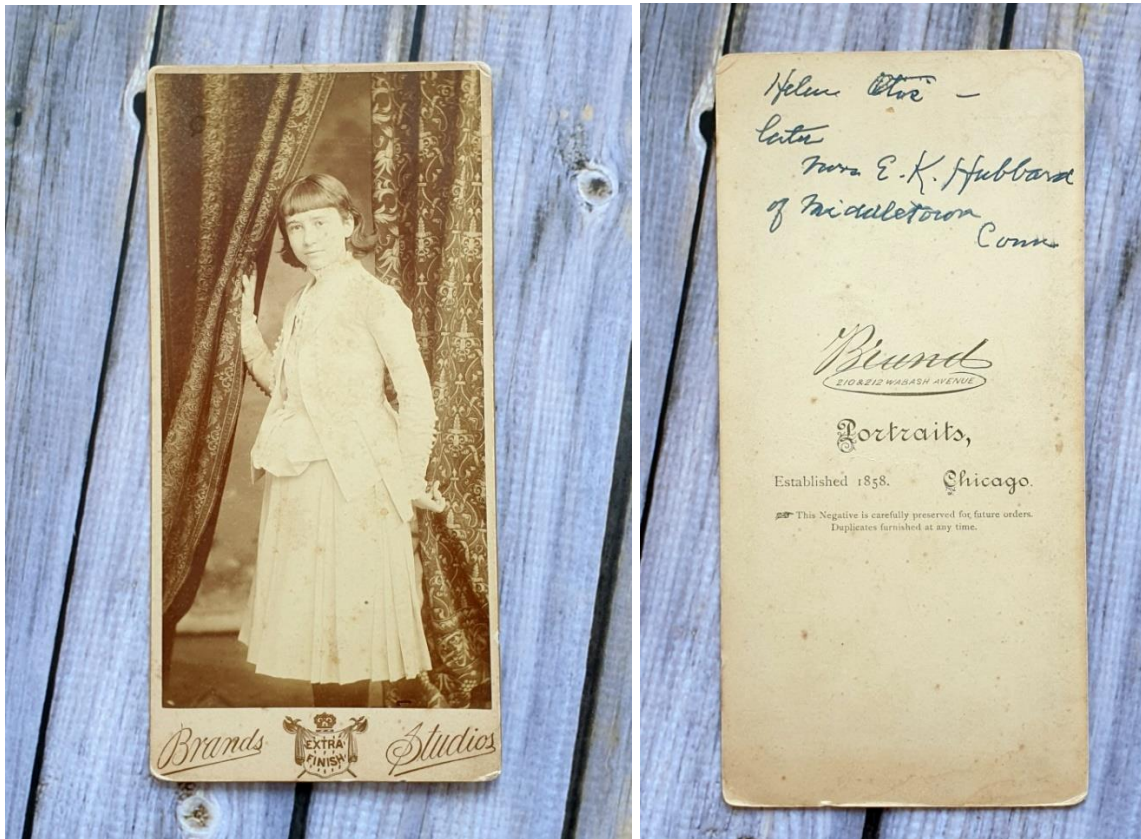 Brands
EXTRA
FINISH
Studios
Helen Otis –
later
Mrs E. K. Hubbard
of Middletown
Conn
Brand
210 & 212 WABASH AVENUE
Portraits,
Established 1858. Chicago.
This Negative is carefully preserved for future orders.
Duplicates furnished at any time.